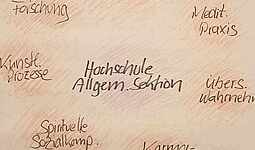 Forschung
Medit.
Praxis
Künstl.
Prozesse
Hochschule
Allgem. Sektion
Übers.
Wahrnehm
Spirituelle
Sozialkomp.
Karma-